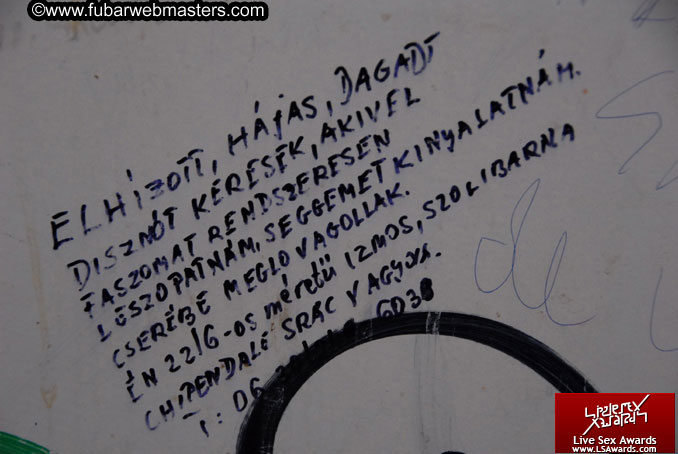 © www.fubarwebmasters.com
ELHÍZOTT, HÁJAS, DAGADT
DISZNÓT KERESEK, AKIVEL
FASZOMAT RENDSZERESEN
LESZOPATNÁM, SEGGEMET KINYALATNÁM.
CSERÉBE MEGLOVAGOLLAK.
ÉN 22/6-OS méretű IZMOS, SZOLIBARNA
CHIPENDALE SRÁC VAGYOK.
T: 06
de
Live Sex Awards
www.LSAwards.com